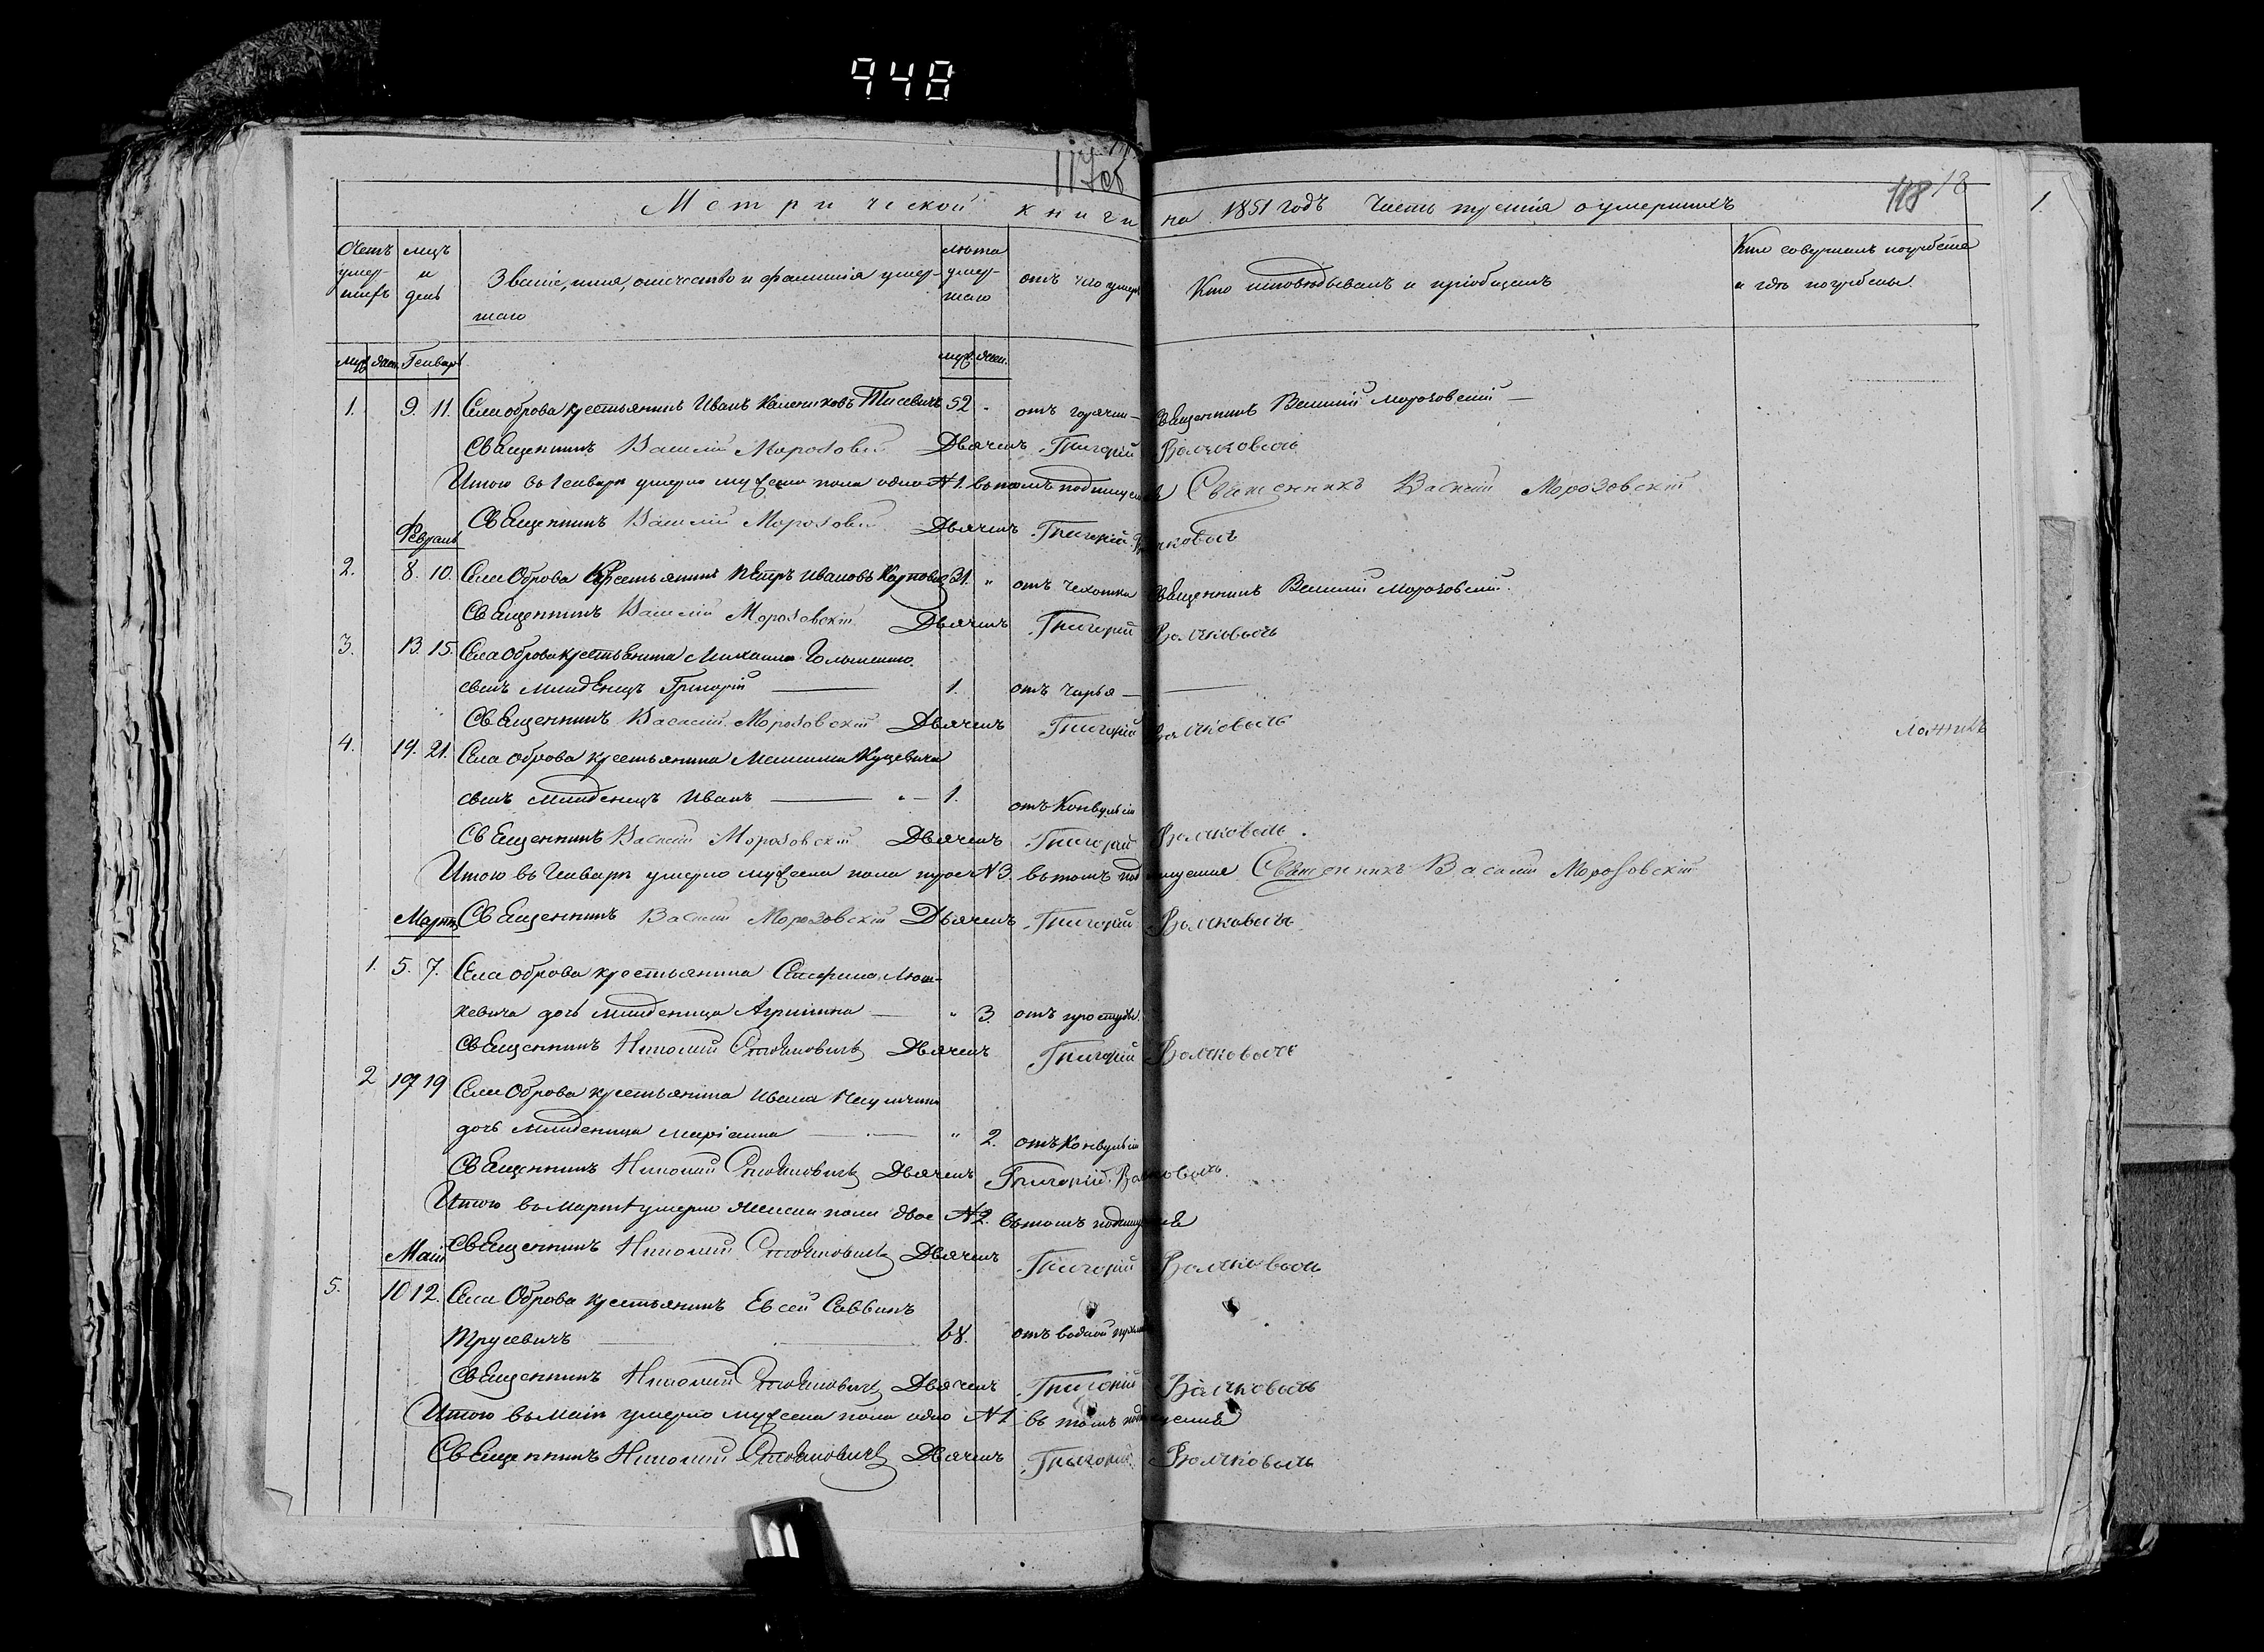 948
117об
118
1.
Метрической книги на 1851 годъ Часть третія о умершихъ
Счетъ умер-шихъ
мцъ и день
Званіе, имя, отчество и фамилія умер-шаго
лѣта умер-шаго
отъ чего умеръ
Кто исповѣдывалъ и пріобщалъ
Кто совершалъ погребеніе и гдѣ погребены.
муж. жен. Генварь муж. жен.
1. 9. 11. Села оброва крестьянинъ Иванъ 52 отъ горячки — Священникъ Василій Морозовскій —
Священникъ Василій Морозовскій Дьячекъ Григорій Волчковичъ
Итого въ Генварѣ умерло мужеска пола одно N 1. въ томъ подпишемся Священникъ Василій Морозовскій
Священникъ Василій Морозовскій Дьячекъ Григорій Волчковичъ
Февраль
2. 8. 10. Села Оброва Крестьянинъ Петръ Ивановъ Карповичъ 31. " отъ чахотки Священникъ Василій Морозовскій.
Священникъ Василій Морозовскій Дьячекъ Григорій Волчковичъ
3. 13. 15. Села Оброва крестьянина Михаила
сынъ младенецъ Григорій — 1. отъ —
Священникъ Василій Морозовскій Дьячекъ Григорій Волчковичъ
4. 19. 21. Села Оброва крестьянина Куцевича
сынъ младенецъ Иванъ — 1. отъ Конвульсіи
Священникъ Василій Морозовскій Дьячекъ Григорій Волчковичъ.
Итого въ Генварѣ умерло мужеска пола трое N 3. въ томъ подпишемся Священникъ Василій Морозовскій
Мартъ Священникъ Василій Морозовскій Дьячекъ Григорій Волчковичъ
1. 5. 7. Села оброва крестьянина
кевича дочь младеница Агрипина — " 3. отъ простуды.
Священникъ Николай Дьячекъ Григорій Волчковичъ
2 17 19 Села Оброва крестьянина Ивана
дочь младеница Маріанна — " 2. отъ Конвульсіи
Священникъ Николай Дьячекъ Григорій Волчковичъ
Итого въ Мартѣ умерло женска пола двое N 2. въ томъ подпишемся
Священникъ Николай Дьячекъ Григорій Волчковичъ
Май
5. 10 12. Села Оброва крестьянинъ Евсей Саввинъ
Трусевичъ — 68. отъ водной
Священникъ Николай Дьячекъ Григорій Волчковичъ
Итого въ Маіи умерло мужеска пола одно N 1 въ томъ подпишемся
Священникъ Николай Дьячекъ Григорій Волчковичъ